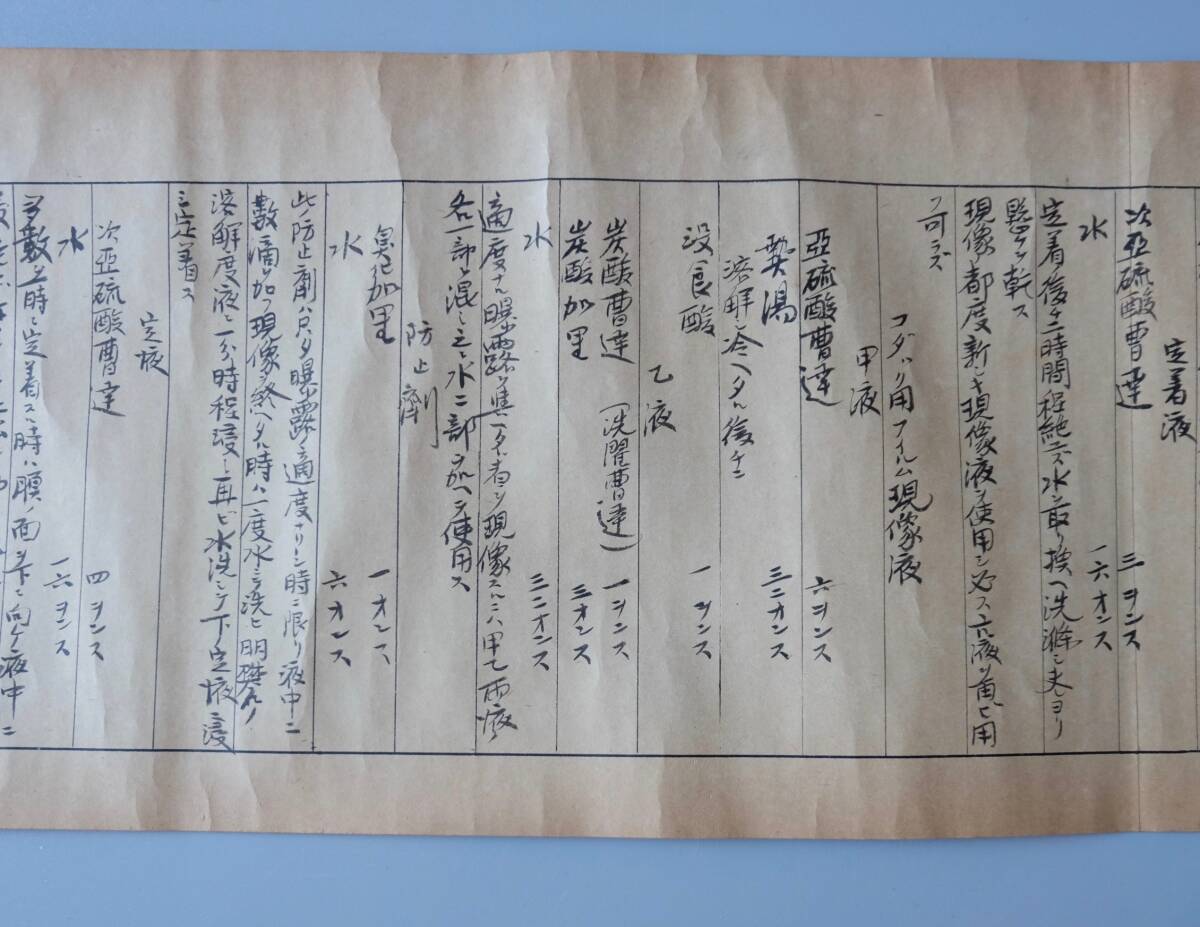 定着液
次亜硫酸曹達 三ヲンス
水 一六オンス
定着後チ二時間程絶エズ水ヲ取リ換ヘ洗滌シ夫ヨリ
懸ケテ乾ス
現像ノ都度新シキ現像液ヲ使用シ必ス古液ヲ再ヒ用
フ可ラズ
コダック用フイルム現像液
甲液
亞硫酸曹達 六ヲンス
熱湯 三二オンス
溶解シ冷ヘタル後チニ
没食酸 一ヲンス
乙液
炭酸曹達(洗濯曹達) 一ヲンス
炭酸加里 三オンス
水 三二オンス
適度ナル曝露ヲ與ヘタル者ヲ現像スルニハ甲乙両液
各一部ヲ混シ之ニ水二部ヲ加ヘテ使用ス
防止剤
臭化加里 一オンス
水 六オンス
此ノ防止剤ハ只タ曝露ノ適度ナリシ時ニ限リ液中ニ
数滴ヲ加フ現像ヲ終ヘタル時ハ一度水ニテ洗ヒ明礬ノ
溶解度液ニ一分時程浸シ再ビ水洗シテ下ノ定液ニ浸
シ定着ス
定液
次亞硫酸曹達 四ヲンス
水 一六ヲンス
多数ヲ一時ニ定着スル時ハ膜ノ面ヲ下ニ向ケ液中ニ